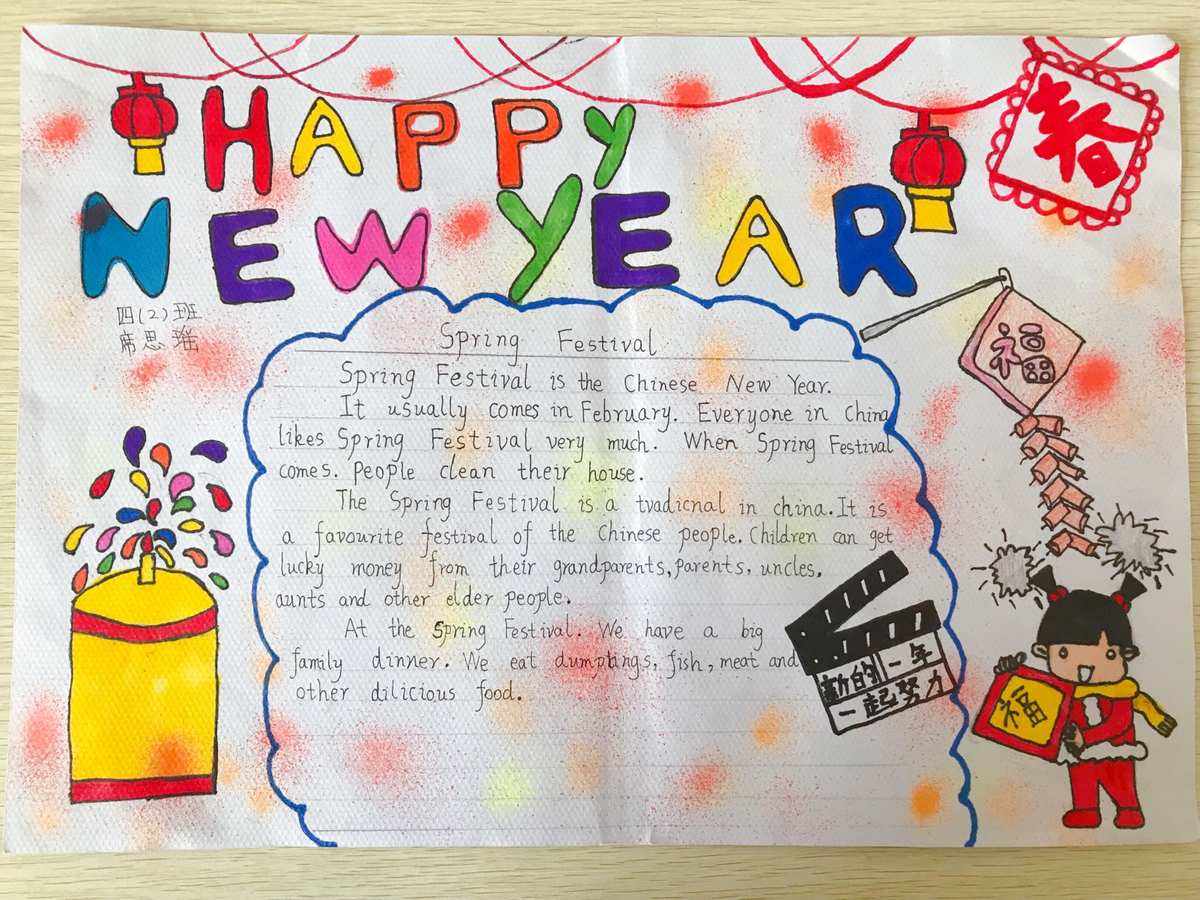 HAPPY
春
NEW YEAR
四(2)班
席思瑶
Spring Festival
Spring Festival is the Chinese New Year.
It usually comes in February. Everyone in China
likes Spring Festival very much. When Spring Festival
comes. People clean their house.
The Spring Festival is a tvadicnal in china. It is
a favourite festival of the Chinese people. Children can get
lucky money from their grandparents, parents, uncles,
aunts and other elder people.
At the Spring Festival. We have a big
family dinner. We eat dumptings, fish, meat and
other dilicious food.
福
的一年
一起努力
福